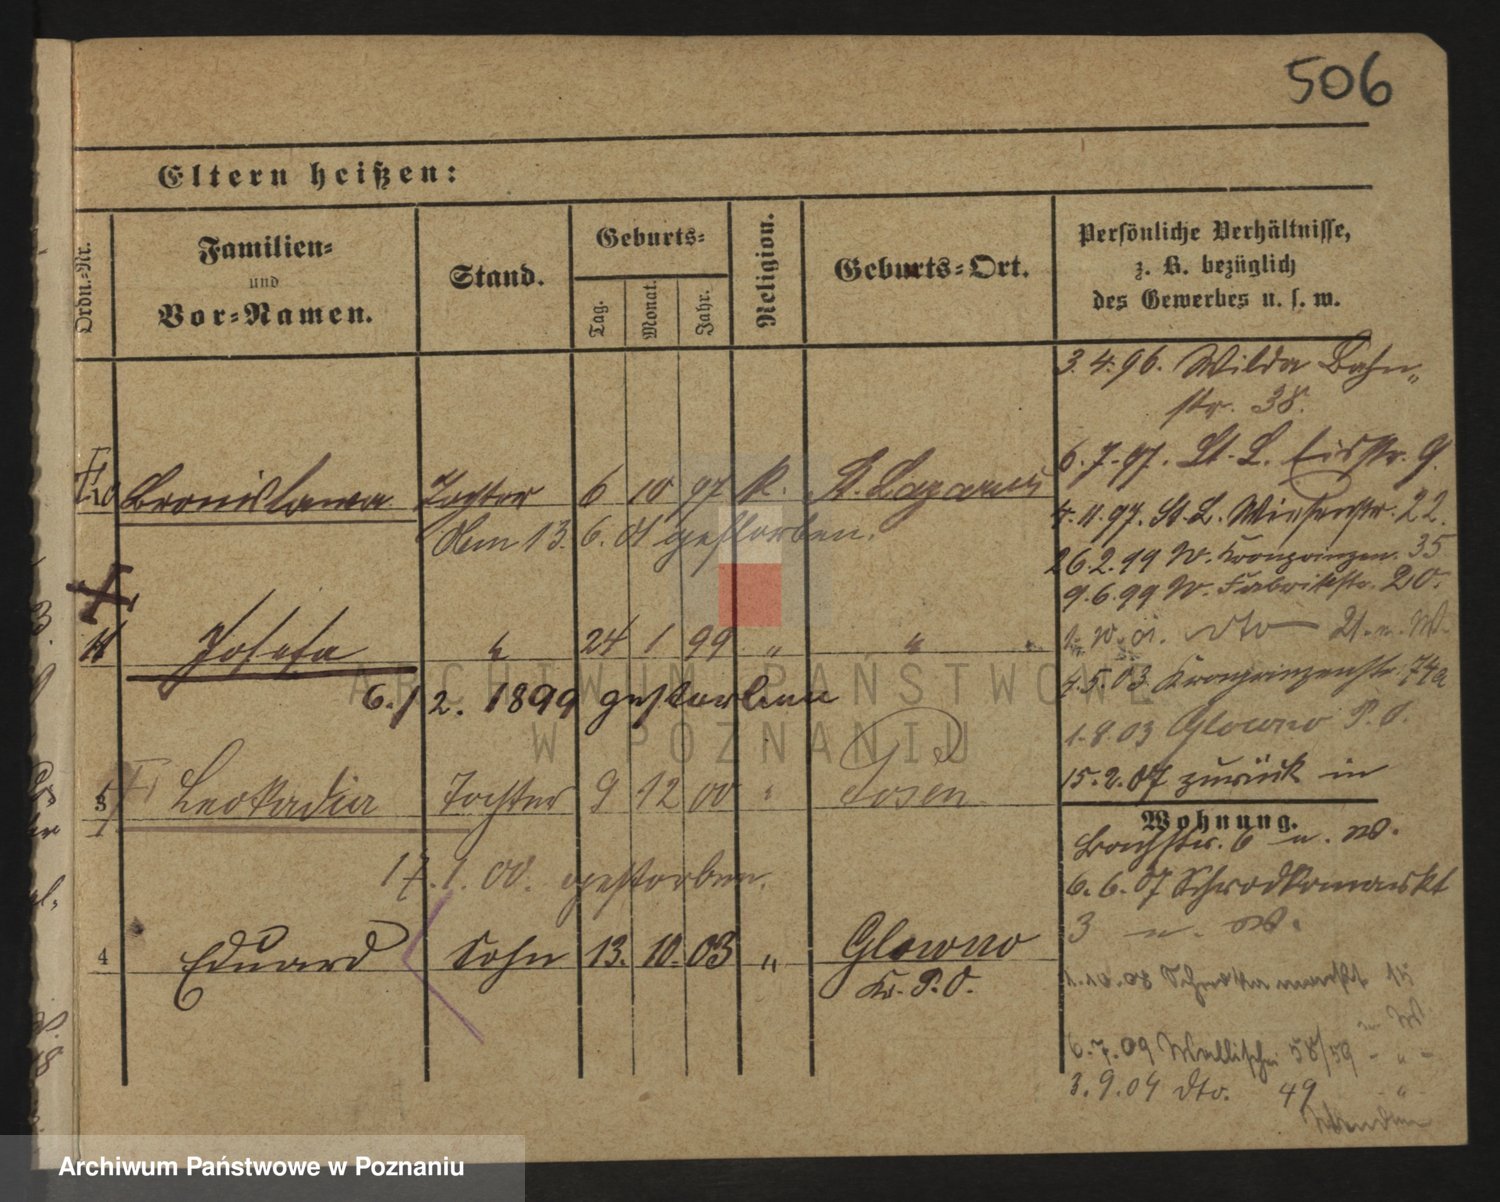 506
Eltern heißen:
Ordn.-Nr.
Familien- und Vor-Namen.
Stand.
Geburts-
Tag. Monat. Jahr.
Religion.
Geburts-Ort.
Persönliche Verhältnisse, z. B. bezüglich des Gewerbes u. s. w.
3.4.96. Wilda Bahn„
str. 38.
6.7.97. St. L. Eisstr. 9.
10 Bronislawa Tochter 6 10 97 K. St. Lazarus
4.11.97. St. L. Wiesenstr. 22.
Am 13. 6. 01 gestorben.
26.2.99 W. Kronprinzen. 35
9.6.99 W. Fabrikstr. 20.
11 Josefa " 24 1 99 " "
dto 21. n. W.
4.5.03 Kronprinzenstr. 74a
6./2. 1899 gestorben
1.8.03 Glowno P. O.
15.2.07 zurück in
3 Leokadia Tochter 9 12 00 " Posen
Wohnung.
Bachstr. 6 n. W.
17.1.00. gestorben.
6.6.07 Schrodkamarkt
3 n. W.
4 Eduard Sohn 13. 10. 03 „ Glowno
Kr. P. O.
1.10.08 Schrodka markt 15
n W
6.7.09 Wallischei 58/59 - " -
3.9.09 dto. 49 "
ARCHIWUM PAŃSTWOWE
W POZNANIU
Archiwum Państwowe w Poznaniu